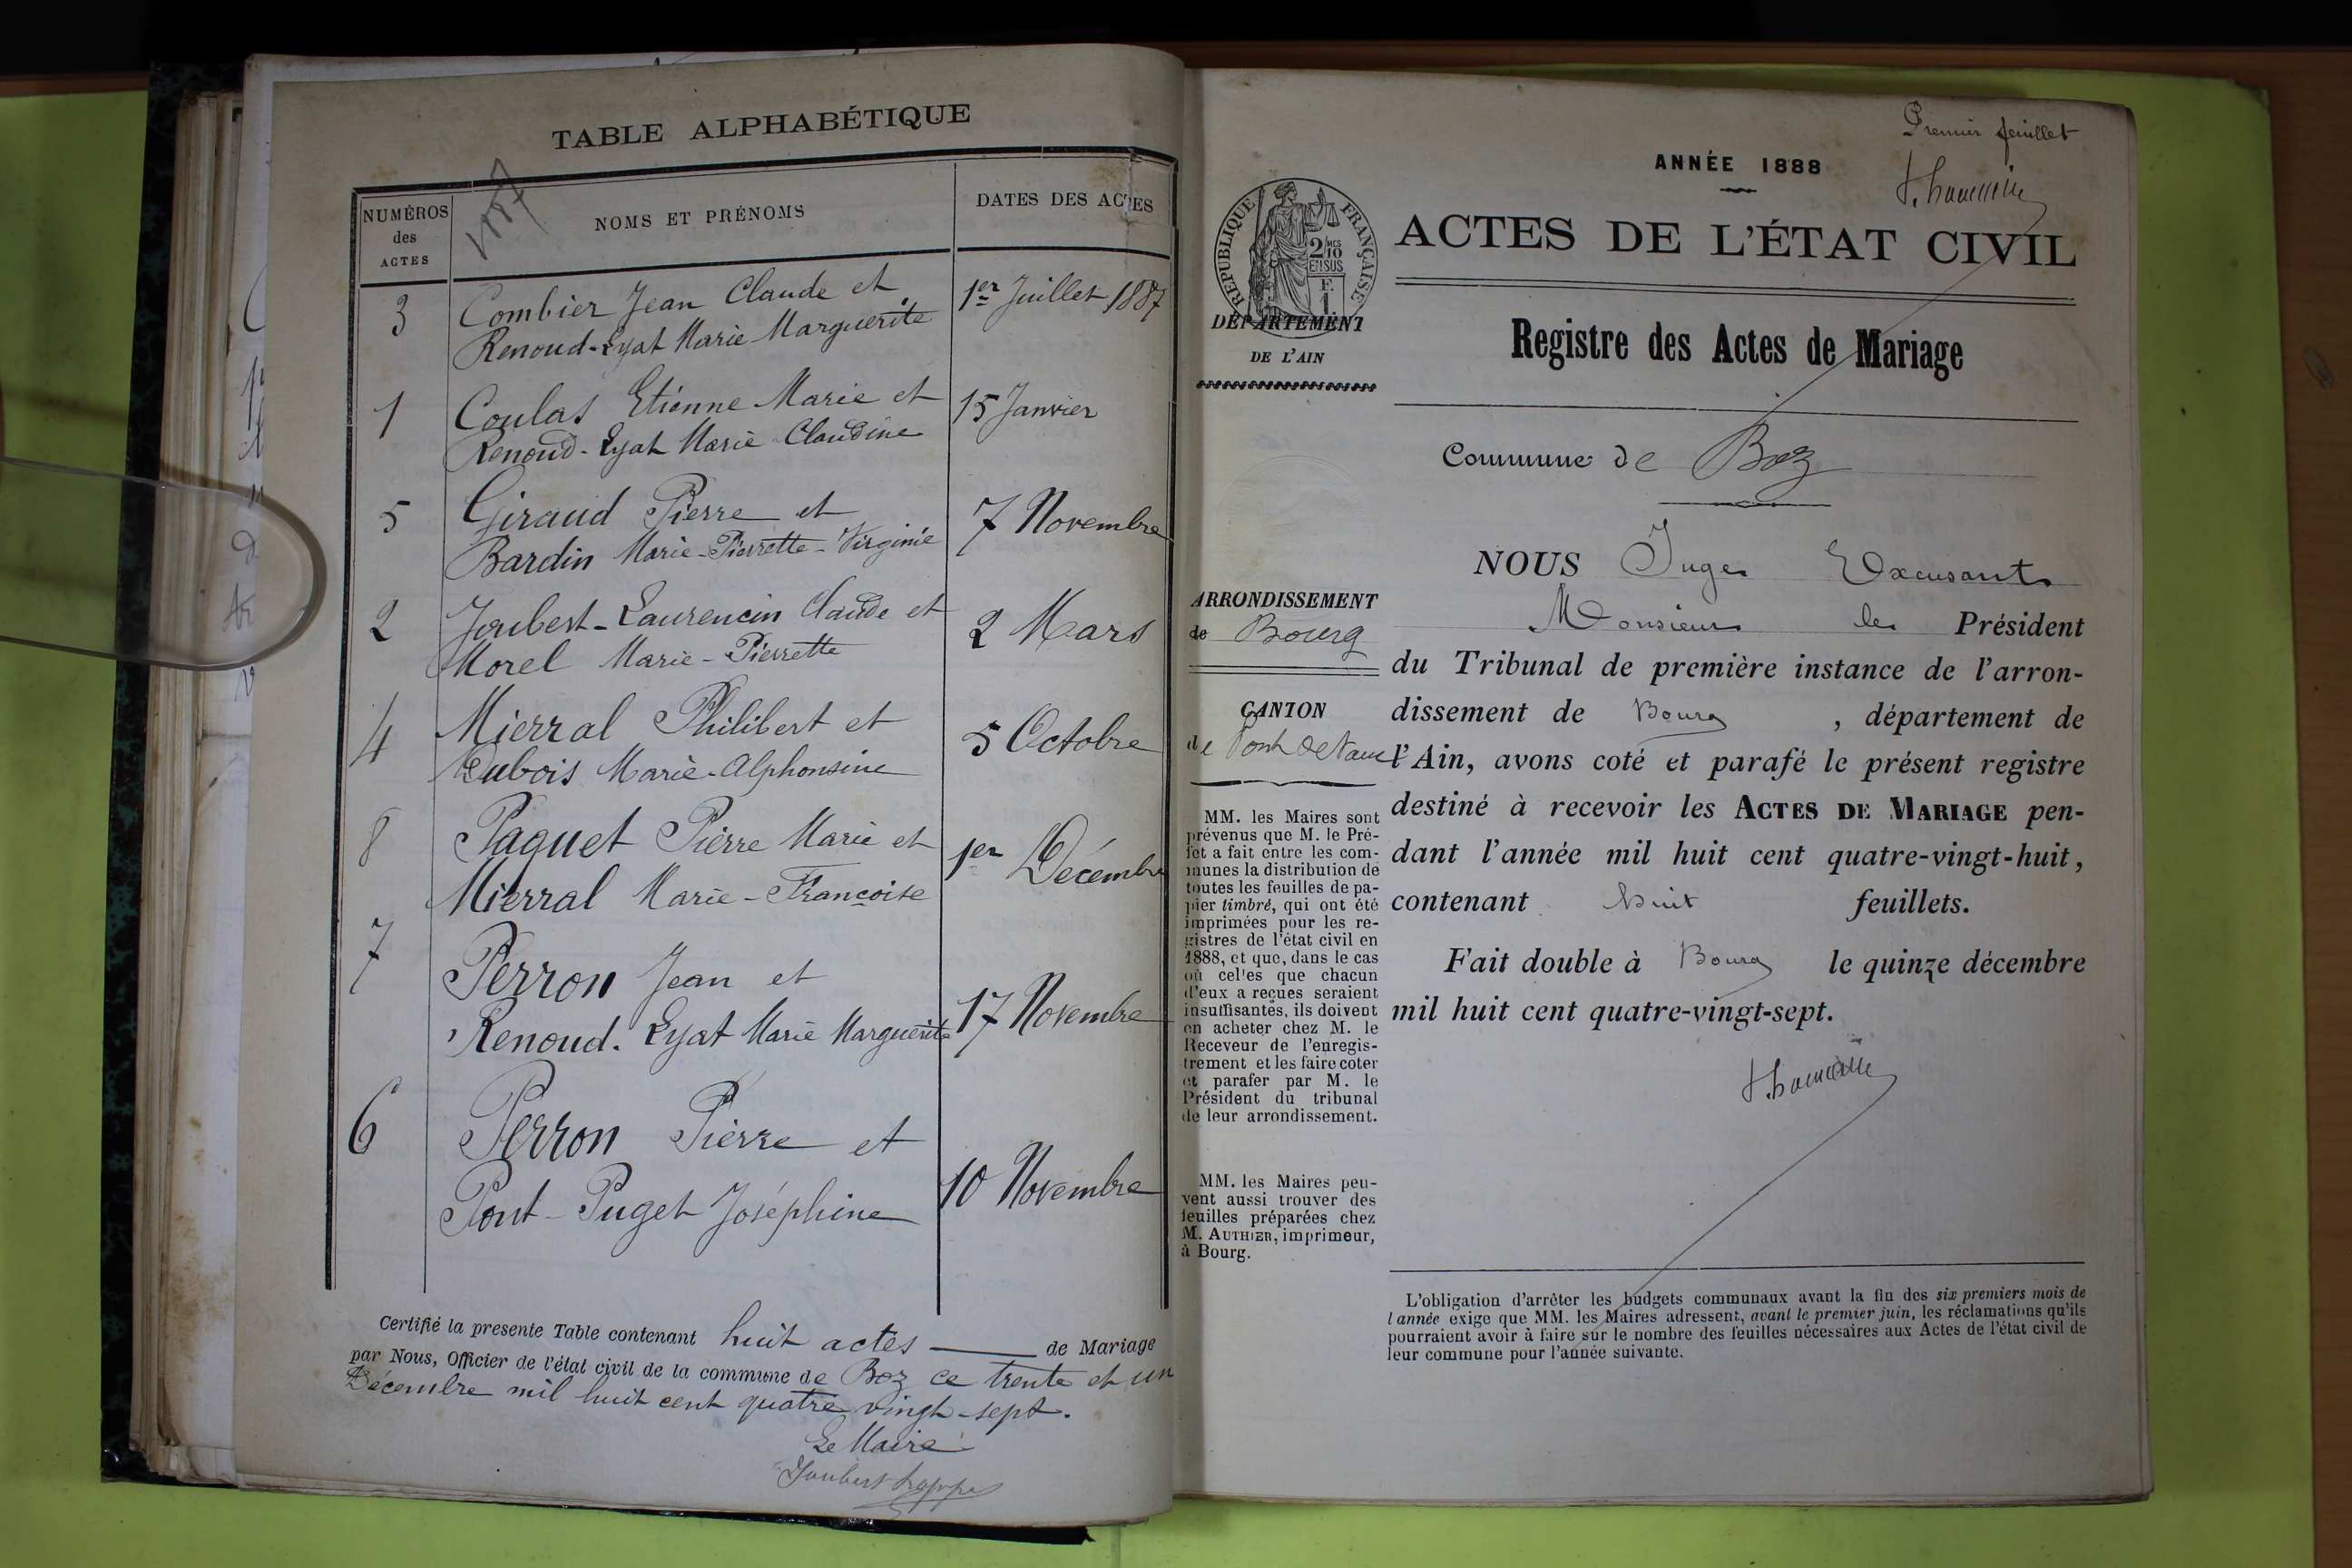 TABLE ALPHABÉTIQUE
1887
NUMÉROS
des
ACTES
NOMS ET PRÉNOMS
DATES DES ACTES
3
Combier Jean Claude et
1er Juillet 1887
Renoud-Lyat Marie Marguerite
1
Coulas Etienne Marie et
15 Janvier
Renoud-Lyat Marie Claudine
5
Giraud Pierre et
7 Novembre
Bardin Marie-Pierrette-Virginie
2
Joubert-Laurencin Claude et
2 Mars
Morel Marie-Pierrette
4
Mierral Philibert et
5 Octobre
Dubois Marie-Alphonsine
8
Paquet Pierre Marie et
1er Décembre
Mierral Marie-Françoise
7
Perron Jean et
17 Novembre
Renoud-Lyat Marie Marguerite
6
Perron Pierre et
10 Novembre
Pont-Puget Joséphine
Certifié la presente Table contenant huit actes de Mariage
par Nous, Officier de l'état civil de la commune de Boz ce trente et un
Décembre mil huit cent quatre vingt-sept.
Le Maire
Joubert
Premier feuillet
ANNÉE 1888
RÉPUBLIQUE FRANÇAISE
2/10 MES
EN SUS
F.
1
ACTES DE L'ÉTAT CIVIL
DÉPARTEMENT
DE L'AIN
Registre des Actes de Mariage
Commune de Boz
ARRONDISSEMENT
de Bourg
CANTON
de Pont de Vaux
MM. les Maires sont
prévenus que M. le Pré-
fet a fait entre les com-
munes la distribution de
toutes les feuilles de pa-
pier timbré, qui ont été
imprimées pour les re-
gistres de l'état civil en
1888, et que, dans le cas
où celles que chacun
d'eux a reçues seraient
insuffisantes, ils doivent
en acheter chez M. le
Receveur de l'enregis-
trement et les faire coter
et parafer par M. le
Président du tribunal
de leur arrondissement.
MM. les Maires peu-
vent aussi trouver des
feuilles préparées chez
M. AUTHIER, imprimeur,
à Bourg.
NOUS Juge Excusant
Monsieur le Président
du Tribunal de première instance de l'arron-
dissement de Bourg, département de
l'Ain, avons coté et parafé le présent registre
destiné à recevoir les ACTES DE MARIAGE pen-
dant l'année mil huit cent quatre-vingt-huit,
contenant huit feuillets.
Fait double à Bourg le quinze décembre
mil huit cent quatre-vingt-sept.
L'obligation d'arrêter les budgets communaux avant la fin des six premiers mois de
l'année exige que MM. les Maires adressent, avant le premier juin, les réclamations qu'ils
pourraient avoir à faire sur le nombre des feuilles nécessaires aux Actes de l'état civil de
leur commune pour l'année suivante.